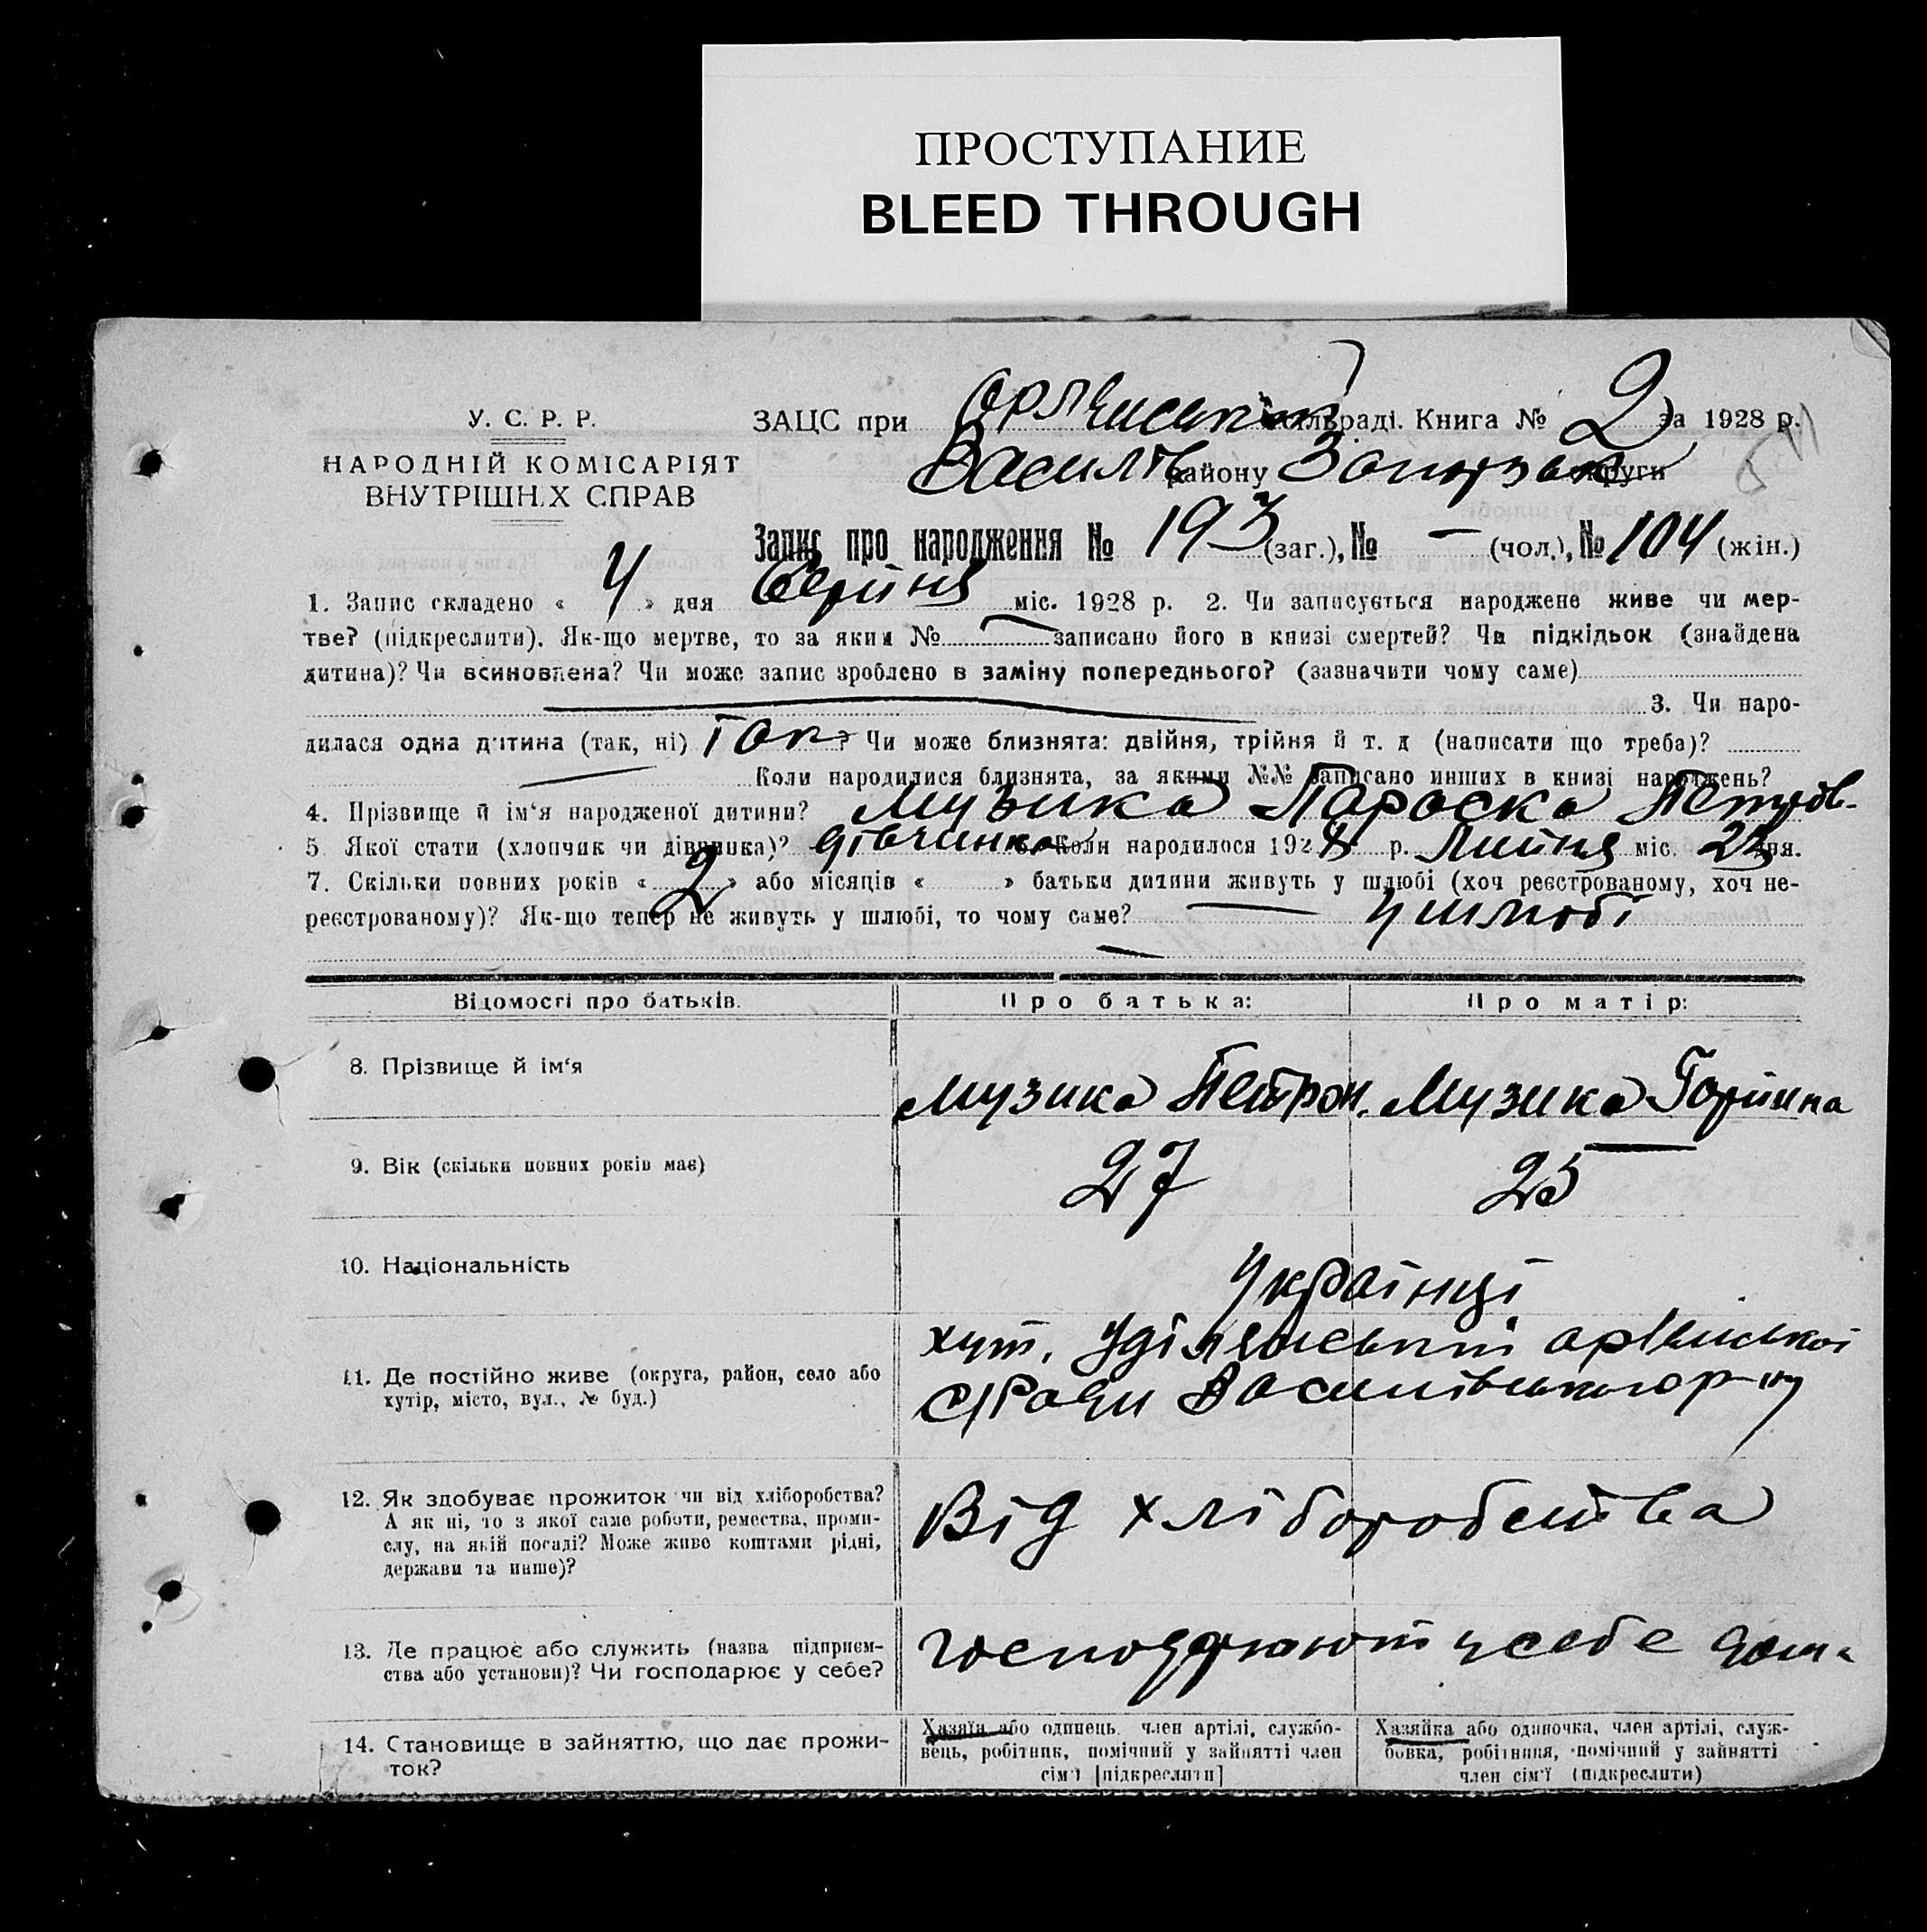 ПРОСТУПАНИЕ
BLEED THROUGH
У. С. Р. Р.
НАРОДНІЙ КОМІСАРІЯТ
ВНУТРІШНІХ СПРАВ
ЗАЦС при Орлянській сільраді. Книга № 2 за 1928 р.
Василів району Запорізьк округи
Запис про народження № 193 (заг.), № — (чол.), № 104 (жін.)
1. Запис складено « 4 » дня Серпня міс. 1928 р. 2. Чи записується народжене живе чи мер-
тве? (підкреслити). Як-що мертве, то за яким № — записано його в книзі смертей? Чи підкідьок (знайдена
дитина)? Чи всиновлена? Чи може запис зроблено в заміну попереднього? (зазначити чому саме)
— 3. Чи наро-
дилася одна дитина (так, ні) Так? Чи може близнята: двійня, трійня й т. д (написати що треба)?
— Коли народилися близнята, за якими №№ записано инших в книзі народжень? —
4. Прізвище й ім‘я народженої дитини? Музика Параска Петров-
5. Якої стати (хлопчик чи дівчинка)? дівчинка 6. Коли народилося 1928 р. Липня міс. дня.
7. Скільки повних років « 2 » або місяців « » батьки дитини живуть у шлюбі (хоч реєстрованому, хоч не-
реєстрованому)? Як-що тепер не живуть у шлюбі, то чому саме? — у шлюбі
—
Відомості про батьків. Про батька: Про матір:
8. Прізвище й ім‘я
Музика Петро Музика Горпина
9. Вік (скільки повних років має) 27 25
10. Національність Українці
11. Де постійно живе (округа, район, село або
хутір, місто, вул., № буд.)
хут. Орлянської
с/Ради Василівського р-ну
12. Як здобуває прожиток чи від хліборобства?
А як ні, то з якої саме роботи, ремества, проми-
слу, на якій посаді? Може живе коштами рідні,
держави та инше)?
Від хліборобства
13. Де працює або служить (назва підприєм-
ства або установи)? Чи господарює у себе?
господарюють у себе дома
14. Становище в зайняттю, що дає прожи-
ток?
Хазяїн або одинець, член артілі, службо-
вець, робітник, помічний у зайнятті член
сім‘ї [підкреслити]
Хазяйка або одиночка, член артілі, служ-
бовка, робітниця, помічний у зайнятті
член сім‘ї (підкреслити)